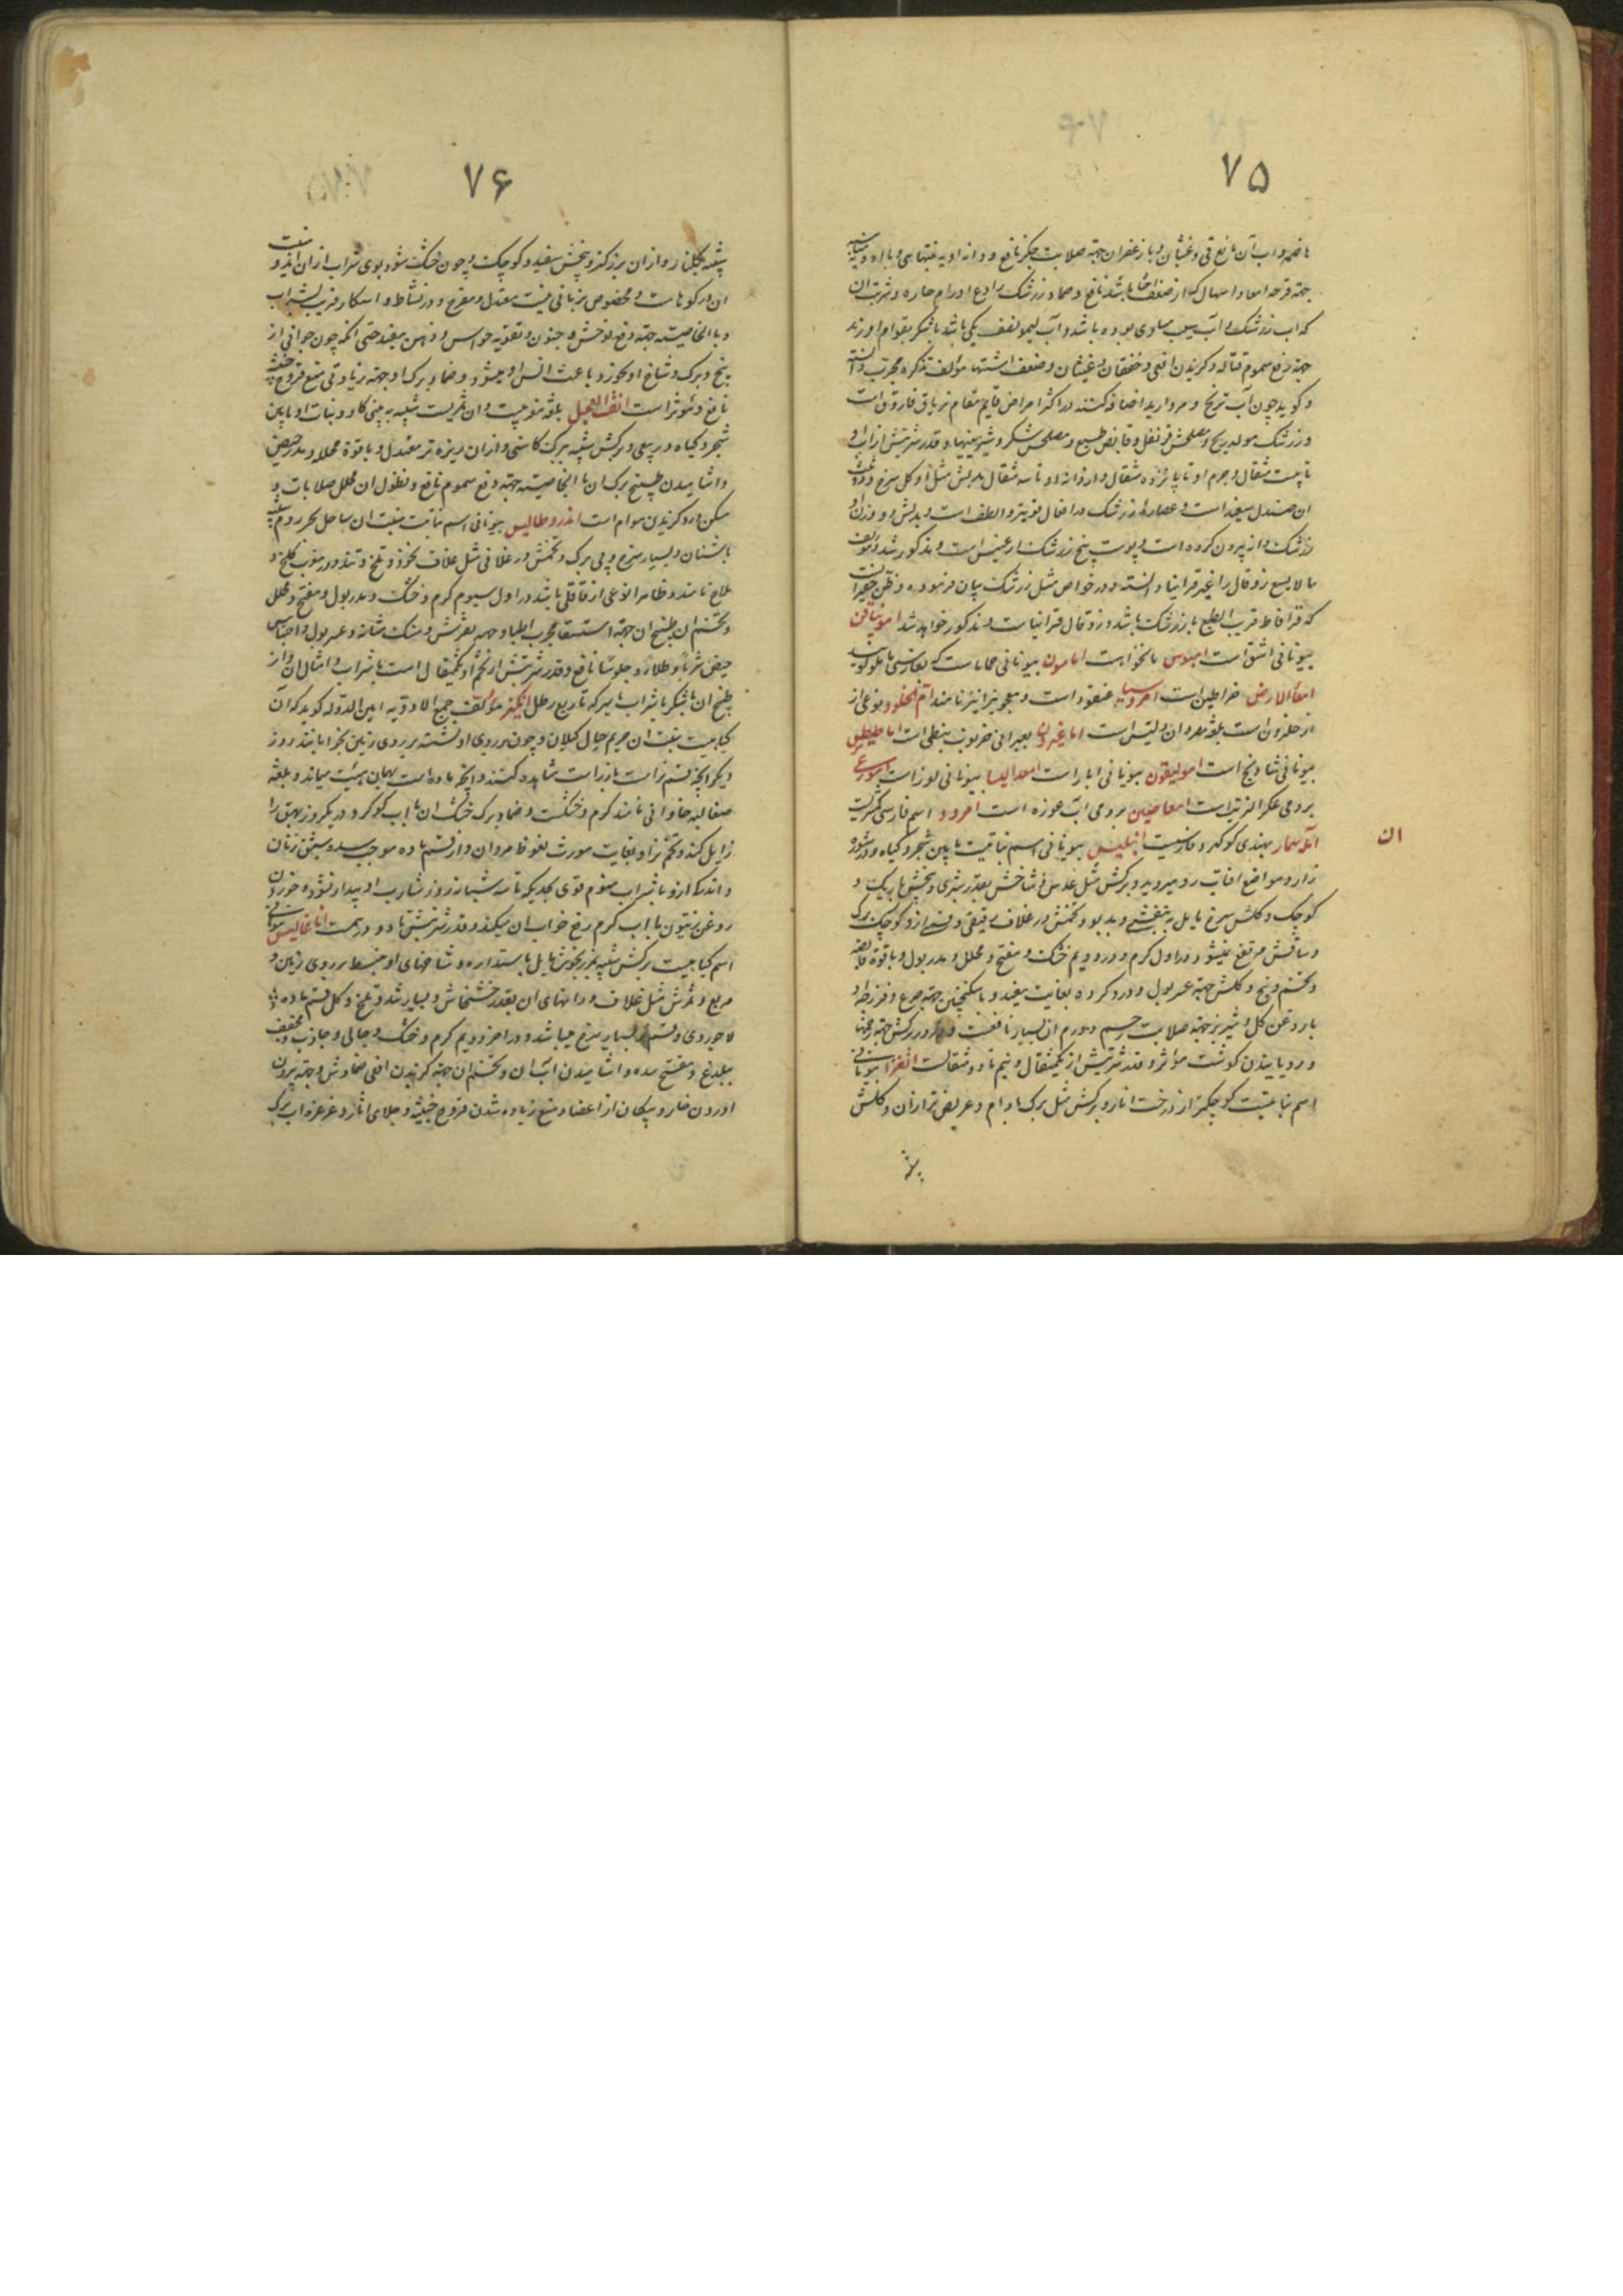 ۷۵
جهة قرحه امعا و اسهال که از ضعف باشد نافع و ضماد زرشک رادع اورام حاره و شربت ان
که اب زرشک و آب سیب مساوی بوده باشد و آب لیمو نصف یکی باشد با شکر بقوام اورند
جهة دفع سموم قتاله و کزیدن افعی و خفقان و غثیان و ضعف اشتها مؤلف تذکره مجرب دانسته
و کوید چون آب ترنج و مروارید اضافه کنند در اکثر امراض قایم مقام تریاق فاروق است
و زرشک مولد ریح و مصلحش قرنفل و قابض طبع و مصلحش شکر و شیرینیها و قدر شربتش از اب او
تا بیست مثقال و جرم او تا پانزده مثقال و از دانه او تا سه مثقال بدلش مثل او کل سرخ و دو ثلث
ان صندل سفید است و عصاره زرشک در افعال قویتر و الطف است و بدلش دو وزن او
زرشک دانه بیرون کرده است و پوست بیخ زرشک ارغیس است و مذکور شد و مؤلف
ما لا یسع زوقال را غیر قرانیا دانسته و در خواص مثل زرشک بیان فرموده و ظن حقیر انست
که قراقاط قریب الطبع با زرشک باشد و زوقال قرانیاست و مذکور خواهد شد امونیاقن
بیونانی اشق است امیوس نانخواه است امامون بیونانی حماماست که بفارسی ماهلو کویند
امعاء الارض خراطین است امروسیا عنقود است و معجونیرا نیز نامند ام الحلود نوعی از
بیونانی شادنج است امولیقون بیونانی ابار است امعدالیسا بیونانی لوز است امورعی
برومی عکر الزیت است امعاضیین برومی آب غوره است امرود اسم فارسی کمثریست
ان
انوسهار بهندی کوکرد فارسیست انبلیس بیونانی اسم نباتیست مابین شجر و کیاه و در شوره
زار و مواضع افتاب رو میروید و برکش مثل عدس و شاخش بقدر شبری و بیخش باریک و
کوچک و کلش سرخ مایل به بنفشی و بدبو و تخمش در غلاف رقیقی و قسمی ازو کوچک برک
و ساقش مرتفع نمیشود در اول کرم و در دویم خشک و مفتح و محلل و مدر بول و با قوة قابضه
و تخم و بیخ و کلش جهة عسر بول و درد کرده بغایت مفید و با سکنجبین جهة صرع و فرزجه او
با روغن کل و شیر بز جهة صلابت رحم و ورم ان بسیار نافعست و ذرور برکش جهة زخمها
و رویانیدن کوشت مؤثر و قدر شربتش از یکمثقال و نیم تا دو مثقالست انغرا بیونانی
اسم نباتیست کوچکتر از درخت انار و برکش مثل برک بادام و عریض تر از ان و کلش
۷۶
شبیه بکلنار و از ان بزرکتر و بیخش سفید و کوچک و چون خشک شود بوی شراب از ان اید و منبت
ان در کوهاست و مخصوص بزمانی نیست معتدل و مفرح و در نشاط و اسکار قریب بشراب
و با الخاصیته جهة دفع توحش و جنون و تقویه حواس و ذهن مفید حتی انکه چون حیوانی از
بیخ و برک و شاخ او بخورد باعث انس او میشود و ضماد برک او جهة زیادتی منع قروح خبیثه
نافع و مؤثر است انف العجل بلغة مغربیست و ان ثمریست شبیه به بینی کاو و نبات او مابین
شجر و کیاه و ربیعی و برکش شبیه ببرک کاسنی و از ان ریزه تر معتدل و با قوة محلله و مدر حیض
و اشامیدن طبیخ برک ان با الخاصیته جهة دفع سموم نافع و نطول ان محلل صلابات و
مسکن درد کزیدن هوام است اندروطالیس بیونانی اسم نباتیست منبت ان ساحل بحر روم شبیه
باشنان و بسیار سرخ و بی برک و تخمش در غلافی مثل غلاف نخود و تلخ و تند و در مغرب کلخ و
ملاح نامند و ظاهرا نوعی از قاقلی باشد در اول سیوم کرم و خشک و مدر بول و مفتح و محلل
و تخم ان و طبیخ ان جهة استسقا مجرب اطبا و جهة نقرس و سنک مثانه و عسر بول و احتباس
حیض شربا و طلاء و جلوسا نافع و قدر شربتش از تخم او یکمثقال است با شراب و امثال ان و از
طبیخ ان با شکر یا شراب یا سرکه تا ربع رطل انکیز مؤلف جمع الادویه امین الدوله کوید که ان
کیاهیست منبت ان حریم جبال کیلان و چون بر روی او نشسته بر روی زمین بخوابانند روز
دیکر انچه قسم نر است باز راست شاهده کنند و انچه ماده است بهمان هیئت میماند و بلغه
صفالبه حاوانی نامند کرم و خشکست و ضماد برک خشک ان با اب کوکرد در یکروز بهق را
زایل کند و تخم نر او بغایت مورث نعوظ مردان و از قسم ماده موجب شبق زنان
و اندک ازو با شراب منوم قوی بحدیکه تا سه شبانه روز شارب او بیدار نشود و خوردن
روغن زیتون با اب کرم رفع خواب ان میکند و قدر شربتش تا دو درهمست اناغالیس بیونانی
اسم کیاهیست برکش شبیه بمرزنجوش مایل باستداره و شاخهای او منبسط بر روی زمین و
مربع و ثمرش مثل غلاف و دانهای ان بقدر خشخاش و بسیار تند و تلخ و کل قسم ماده او
لاجوردی و قسم نر بسیار سرخ میباشد و در اخر دویم کرم و خشک و جالی و جاذب و مجفف
بیلدغ و مفتح سده و اشامیدن آب ان و تخم ان جهة کزیدن افعی و جهة بیرون
اوردن خار و پیکان از اعضا و منع زیاده شدن قروح خبیثه و جلای اثار و غرغره اب برک